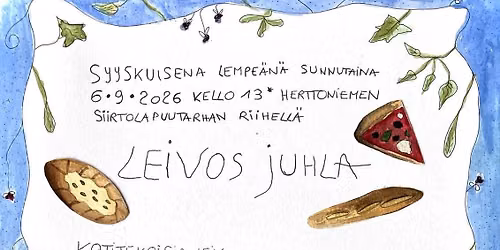 SYYSKUISENA LEMPEÄNÄ SUNNUTAINA
6.9.2026 KELLO 13* HERTTONIEMEN
SIIRTOLAPUUTARHAN RIIHELLÄ
LEIVOS JUHLA